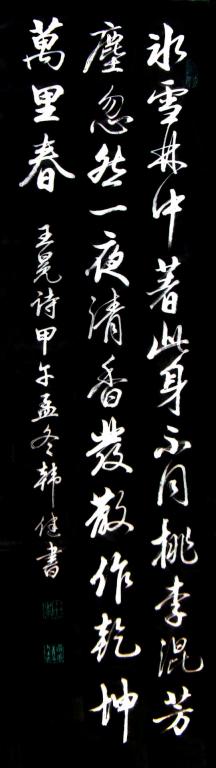 冰雪林中著此身不同桃李混芳
塵忽然一夜清香發散作乾坤
萬里春
王冕诗甲午孟冬韩健書